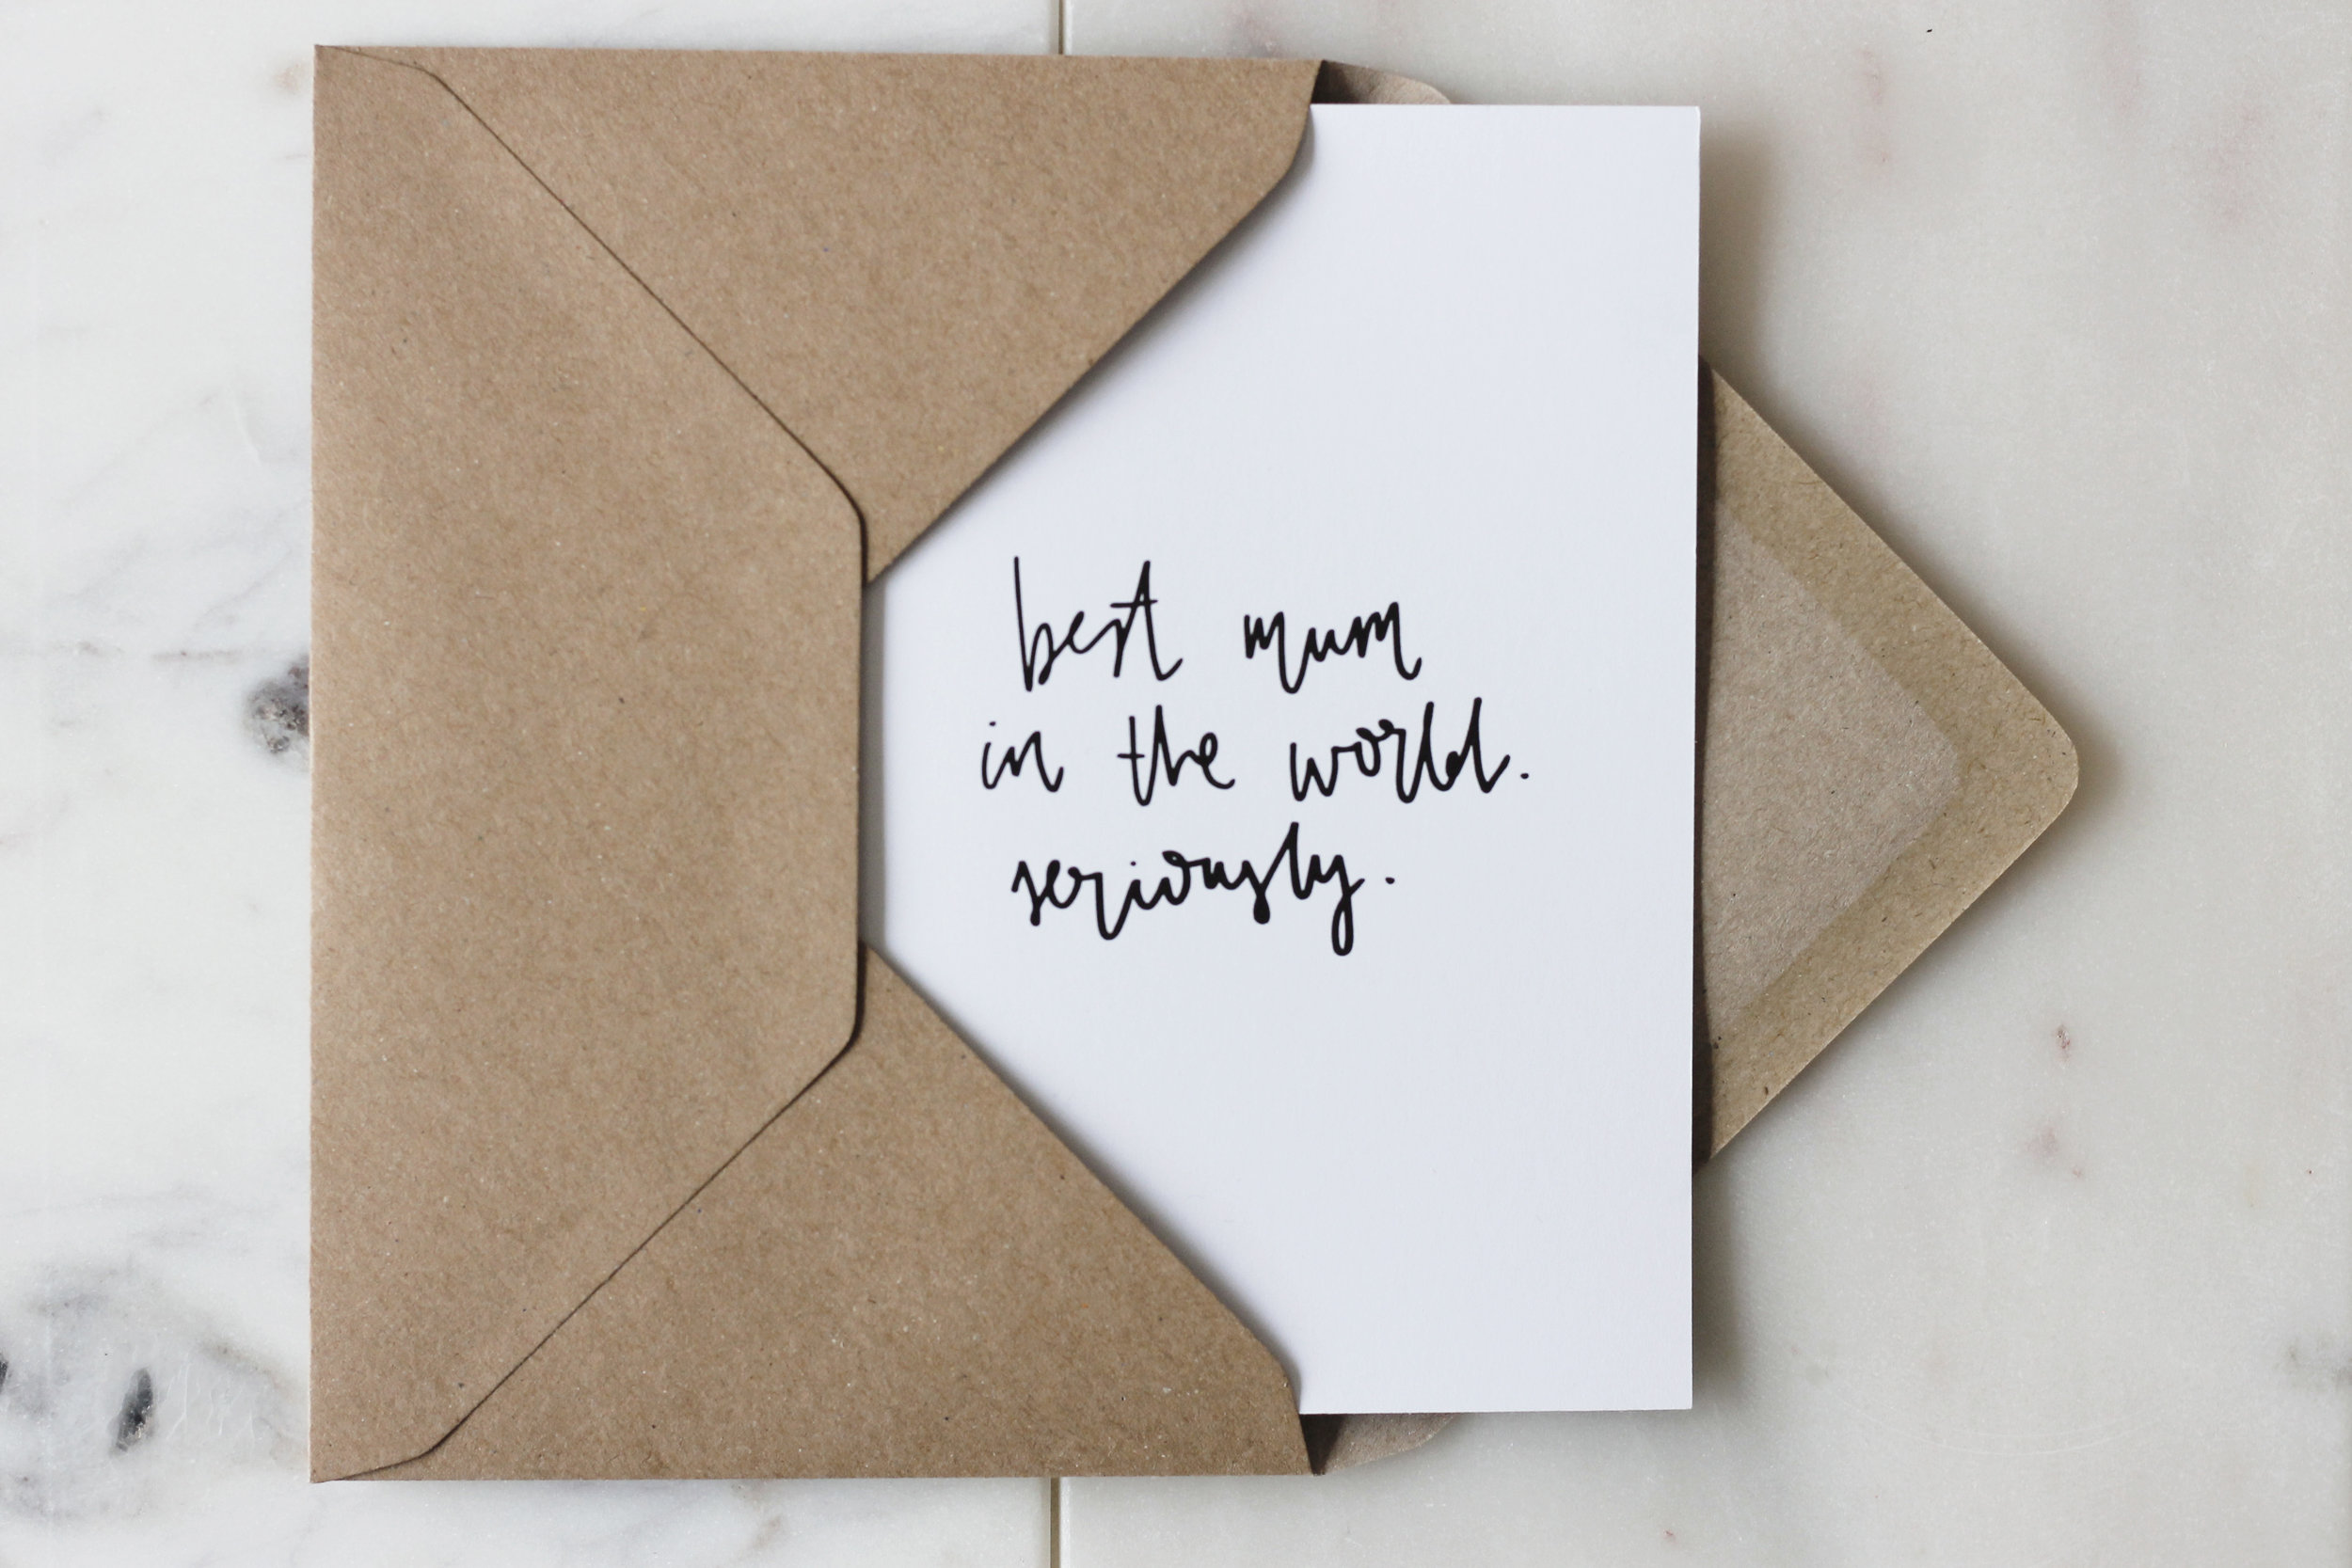 best mum
in the world.
seriously.